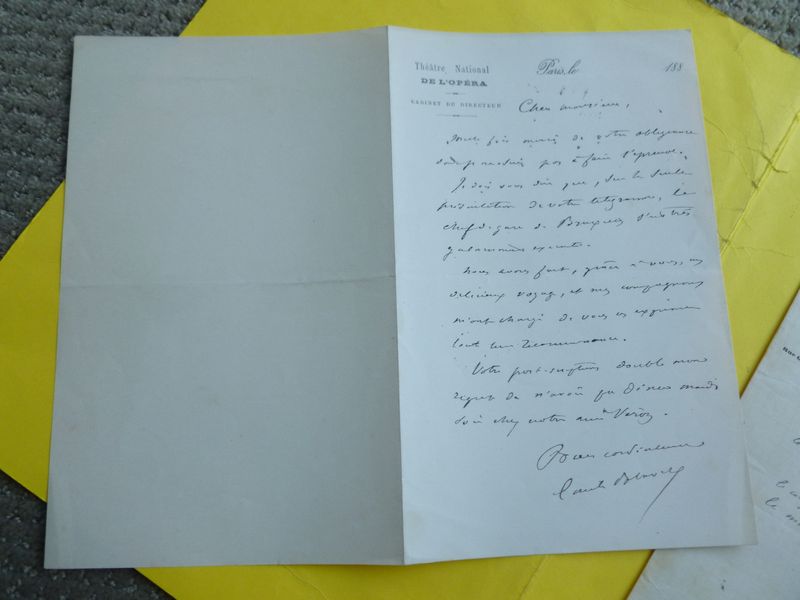 Théâtre National
DE L'OPÉRA
CABINET DU DIRECTEUR
Paris, le 188
Cher monsieur,
Mille fois merci de votre obligeance
pas à faire l'épreuve.
Je dois vous dire que, sur la seule
présentation de votre télégramme, le
chef de gare de Bruxelles s'est très
galamment exécuté.
Nous avons fait, grâce à vous, un
délicieux voyage, et mes compagnons
m'ont chargé de vous en exprimer
toute leur reconnaissance.
Votre post-scriptum double mon
regret de n'avoir pu dîner mardi
soir chez notre ami
Bien cordialement
Rue
le